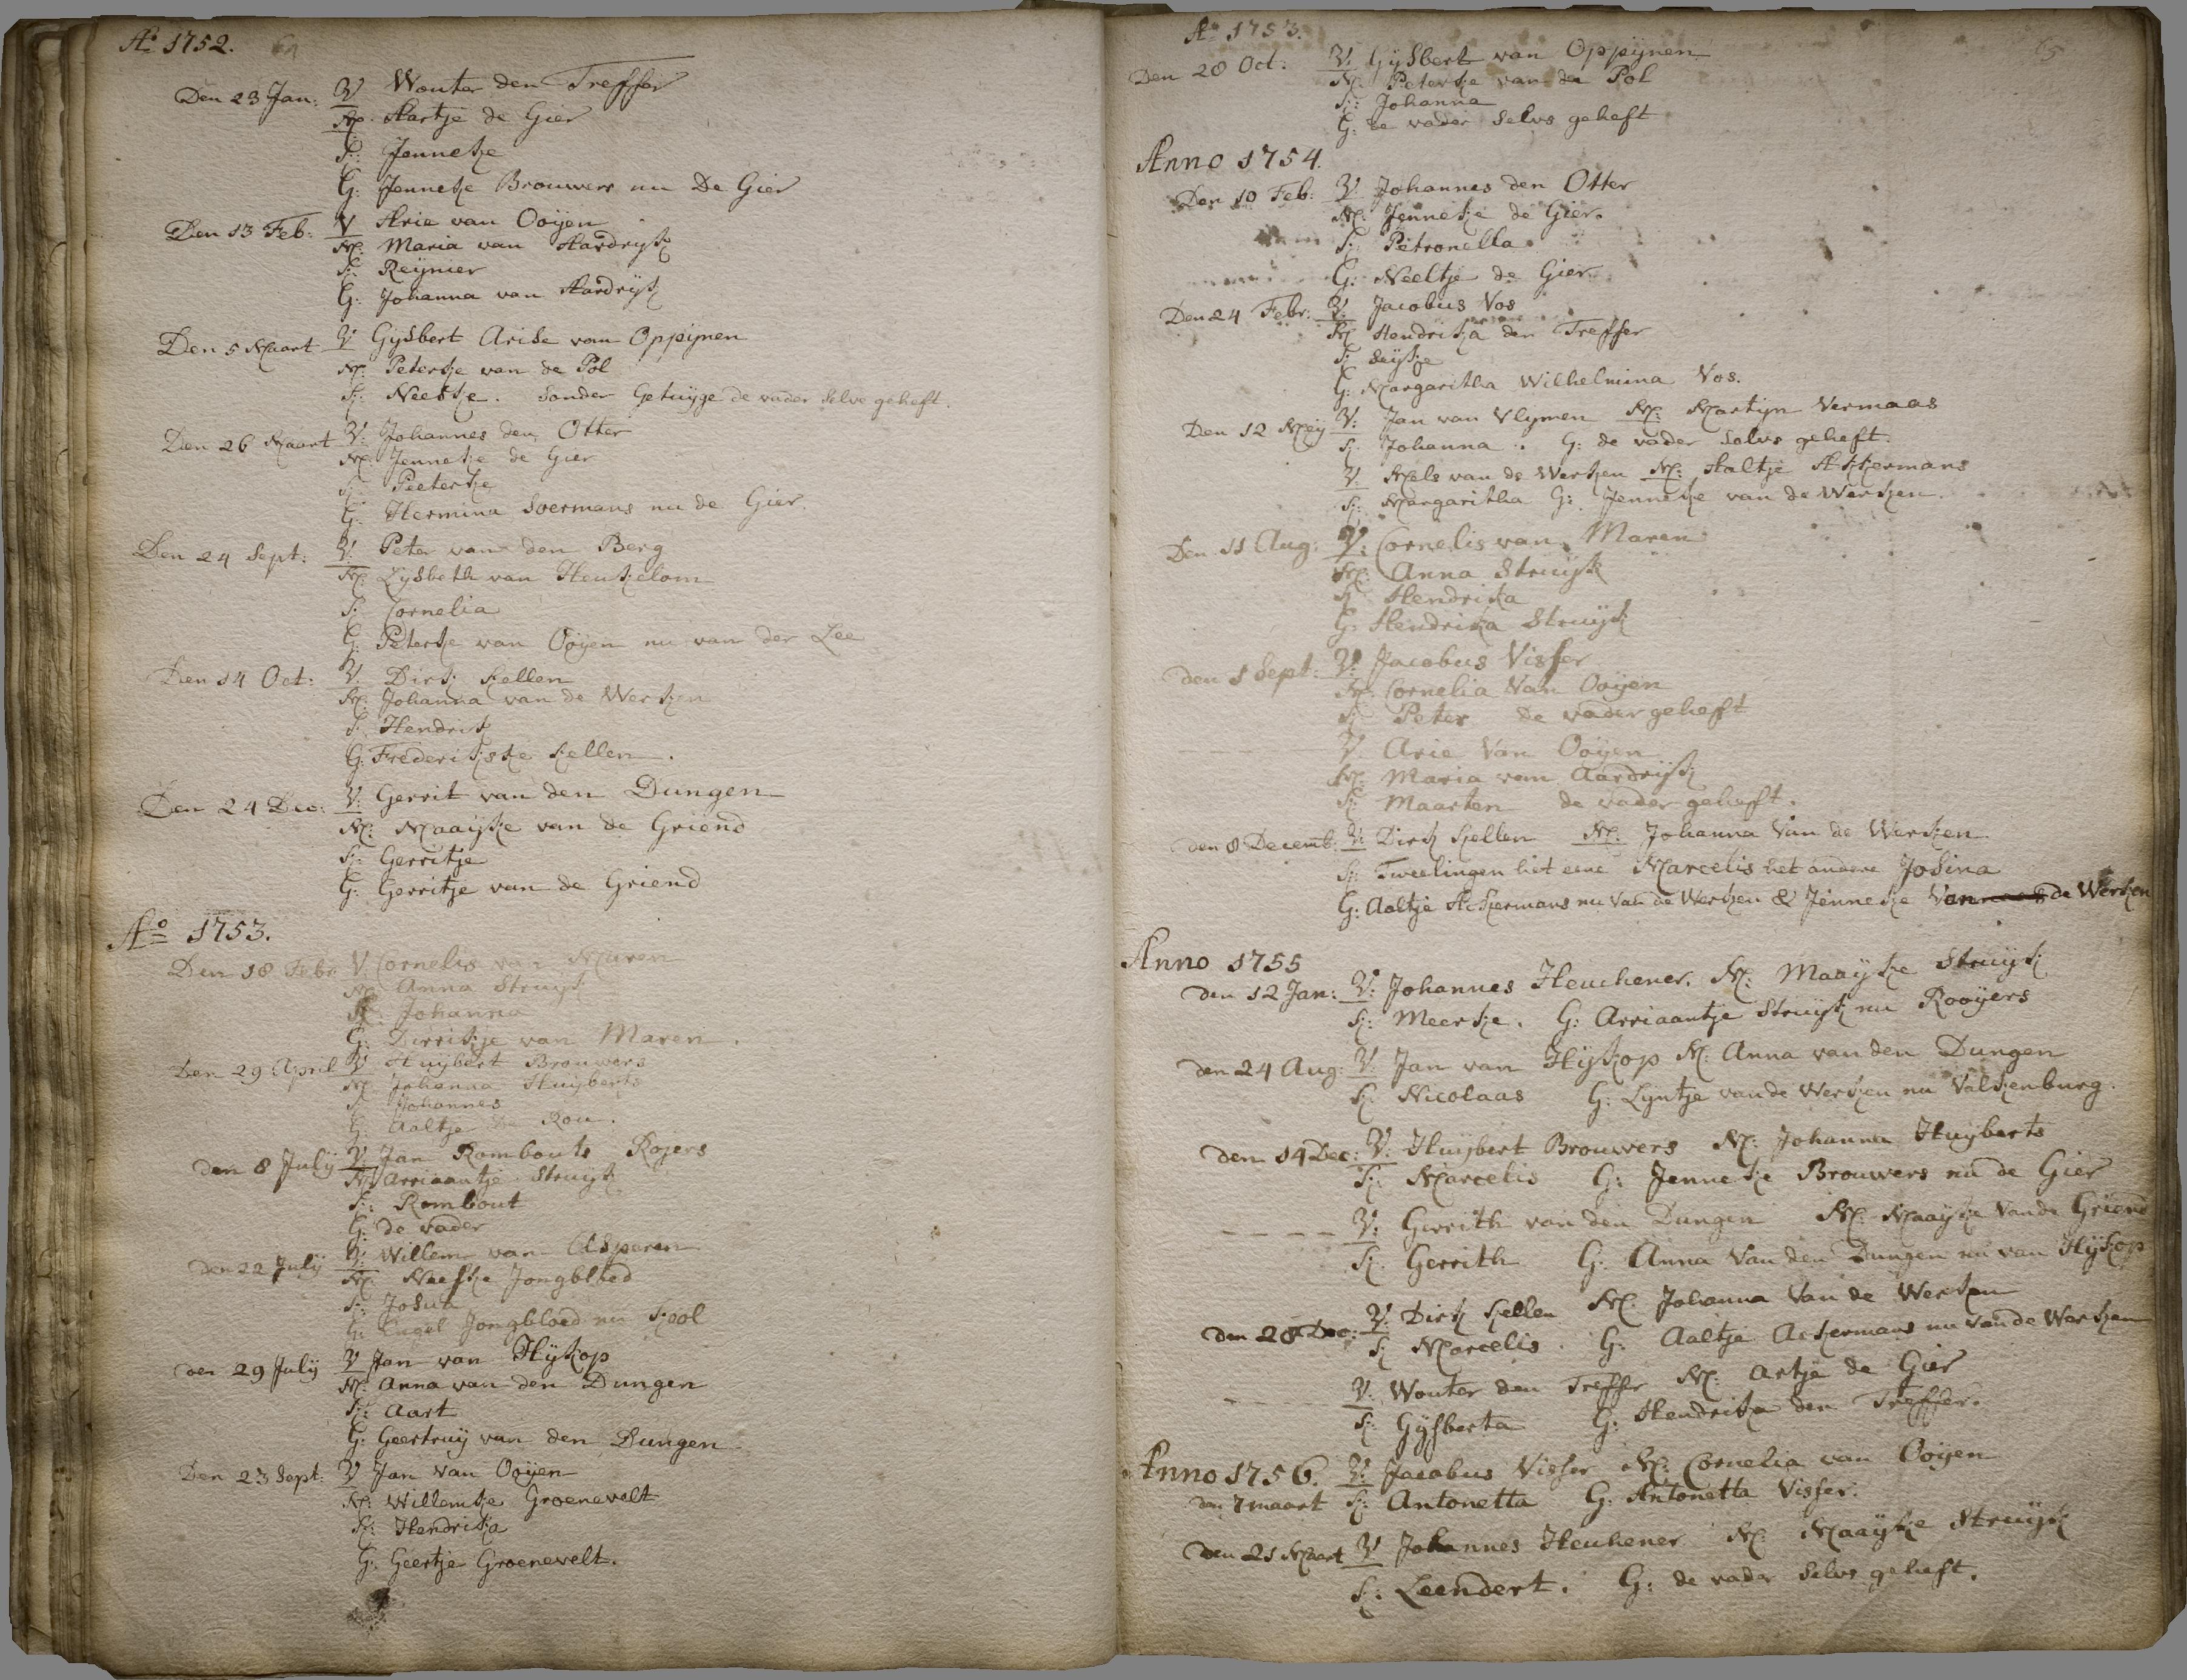 Ao 1752.
Den 23 Jan: V Wouter den Treffer
M. Aartje de Gier
K: Jenneke
G: Jenneke Brouwers nu De Gier
Den 13 Feb: V Arie van Ooijen
M: Maria van Aardryk
K: Reijnier
G: Johanna van Aardrijk
Den 5 Maart V Gijsbert Arise van Oppijnen
M: Peterke van de Pol
K: Neeske. Sonder Getuijge de vader selve geheft.
Den 26 Maart V: Johannes den Otter
M: Jenneke de Gier
K: Peeterke
G: Hermina Soermans nu de Gier.
Den 24 Sept: V: Peter van den Berg
M: Lijsbeth van Heukelom
K: Cornelia
G: Peterke van Ooijen nu van der Lee
Den 14 Oct: V: Dirk Kellen
M: Johanna van de Werken
K: Hendrik
G: Frederikske Kellen.
Den 24 Dec: V: Gerrit van den Dungen
M: Maaijke van de Griend
K: Gerritje
G: Gerritje van de Griend
Ao 1753.
Den 18 Febr V: Cornelis van Maren
M: Anna Struijk
K: Johanna
G: Dirrikje van Maren.
Den 29 April V Huijbert Brouwers
M: Johanna Huijberts
K: Johannes
G: Aaltje de Rou.
den 8 Julij V: Jan Rombouts Rojers
M: Arriaantje Struijk
K: Rombout
G: de vader
den 22 Julij V: Willem van Asperen
M: Neeske Jongbloed
K: Josua
G: Engel Jongbloed nu Kool
den 29 Julij V Jan van Hijkop
M: Anna van den Dungen
K: Aart
G: Geertruij van den Dungen
Den 23 Sept: V Jan van Ooijen
M: Willemke Groenevelt
K: Hendrika
G: Geertje Groenevelt.
Ao 1753.
65
Den 28 Oct: V: Gijsbert van Oppijnen
M: Peterke van de Pol
K: Johanna
G: de vader selvs geheft
Anno 1754.
Den 10 Feb: V Johannes den Otter
M: Jenneke de Gier.
K: Petronella
G: Neeltje de Gier
Den 24 Febr: V: Jacobus Vos
M: Hendrika den Treffer
K: Seijke
G: Margaritha Wilhelmina Vos.
Den 12 Meij V: Jan van Vlymen M: Martijn Vermaas
K: Johanna. G: de vader selvs geheft.
V: Mels van de Werken M: Aaltje Akkermans
K: Margaritha G: Jenneke van de Werken.
Den 11 Aug: V: Cornelis van Maren
M: Anna Struijk
K: Hendrika
G: Hendrika Struijk
den 1 Sept: V: Jacobus Visser
M: Cornelia Van Ooijen
K: Peter de vader geheft
V Arie Van Ooijen
M: Maria van Aardrijk
K: Maarten de vader geheft.
den 8 Decemb: V: Dirk Kellen M: Johanna Van de Werken
K: Tweelingen het eene Marcelis het andere Josina
G: Aaltje Ackermans nu Van de Werken & Jenneke Van de Werken
Anno 1755
den 12 Jan: V: Johannes Heuchener. M: Maaijke Struijk
K: Meerke. G: Arriaantje Struijk nu Rooijers
den 24 Aug: V: Jan van Hijkop M: Anna van den Dungen
K: Nicolaas G: Lijntje van de Werken nu Valkenburg.
den 14 Dec: V: Huijbert Brouwers M: Johanna Huijberts
K: Marcelis G: Jenneke Brouwers nu de Gier
- - - - V: Gerrith van den Dungen M: Maaijke Van de Griend
K. Gerrith G: Anna Van den Dungen nu van Hijkop
den 28 Dec: V: Dirk Kellen M: Johanna Van de Werken
K Marcelis. G: Aaltje Ackermans nu van de Werken
- - - - V: Wouter den Treffer M: Artje de Gier
K: Gijsberta G: Hendrika den Treffer.
Anno 1756. V: Jacobus Visser M: Cornelia van Ooijen
den 7 maart K: Antonetta G: Antonetta Visser.
Den 21 Maart V Johannes Heuhener M: Maaijke Struijk
K: Leendert. G: de vader selvs geheft.